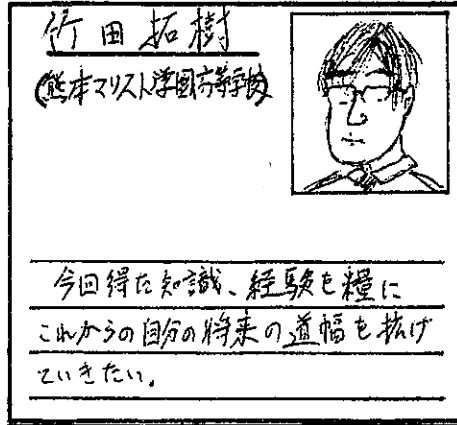 竹田拓樹
(熊本マリスト学園高等学校)
今回得た知識、経験を糧に
これからの自分の将来の道幅を拡げ
ていきたい。